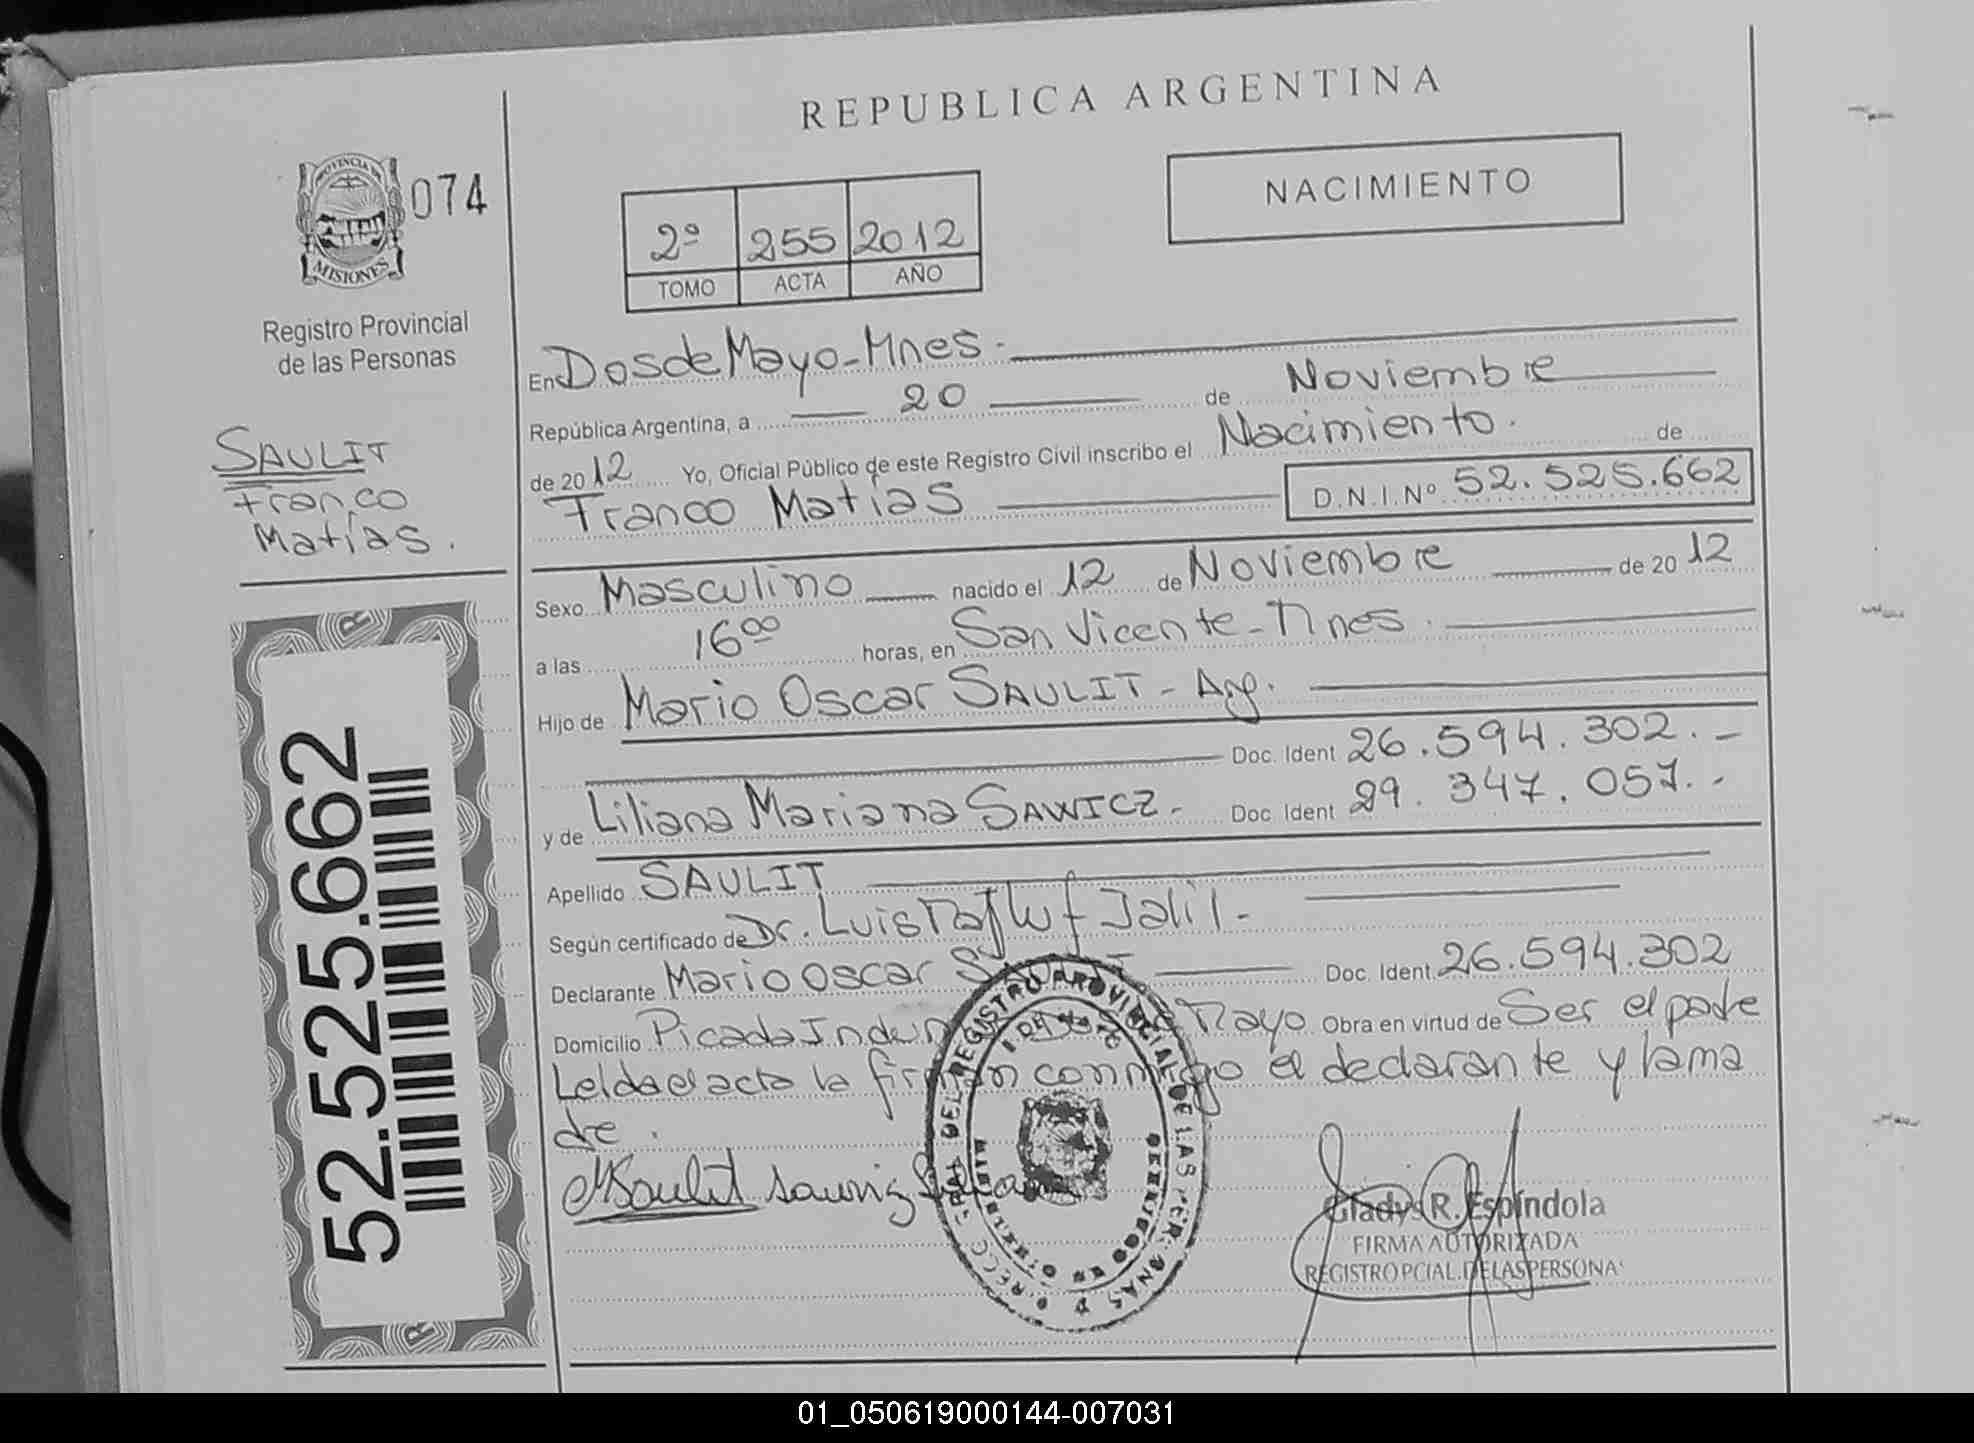 REPUBLICA ARGENTINA
PROVINCIA DE
MISIONES
074
Registro Provincial
de las Personas
2º 255 2012
TOMO ACTA AÑO
NACIMIENTO
SAULIT
Franco
Matías.
52.525.662
En Dos de Mayo-Mnes.
República Argentina, a 20 de Noviembre
de 2012 Yo, Oficial Público de este Registro Civil inscribo el Nacimiento. de
Franco Matías D.N.I.Nº 52.525.662
Sexo Masculino nacido el 12 de Noviembre de 2012
a las 16⁰⁰ horas, en San Vicente-Mnes.
Hijo de Mario Oscar SAULIT - Arg.
Doc. Ident 26.594.302.-
y de Liliana Mariana SAWICZ.- Doc. Ident 29.347.057.-
Apellido SAULIT
Según certificado de Dr. Luis Jalil-
Declarante Mario Oscar Doc. Ident. 26.594.302
Domicilio Picada Mayo Obra en virtud de Ser el padre
Leída el acta la firman conmigo el declarante y la ma
dre.
MSaulit
REGISTRO PROVINCIAL DE LAS PERSONAS
Gladys R. Espíndola
FIRMA AUTORIZADA
REGISTRO PCIAL. DE LAS PERSONAS
01_050619000144-007031